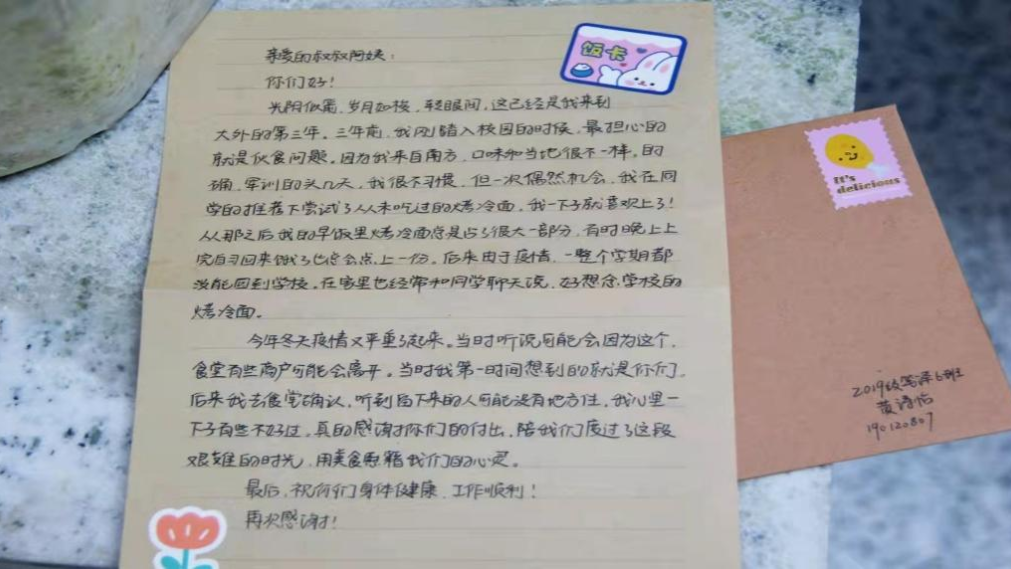 亲爱的叔叔阿姨：
你们好！
光阴似箭，岁月如梭，转眼间，这已经是我来到
大外的第三年。三年前，我刚踏入校园的时候，最担心的
就是饮食问题。因为我来自南方，口味和当地很不一样。的
确，军训的头几天，我很不习惯，但一次偶然机会，我在同
学的推荐下尝试了从未吃过的烤冷面，我一下子就喜欢上了！
从那之后我的早饭里烤冷面总是占了很大一部分，有时晚上上
完自习回来饿了也总会点上一份。后来由于疫情，一整个学期都
没能回到学校。在家里也经常和同学聊天说，好想念学校的
烤冷面。
今年冬天疫情又严重了起来。当时听说可能会因为这个，
食堂有些商户可能会离开。当时我第一时间想到的就是你们。
后来我去食堂确认，听到留下来的人可能没有地方住，我心里一
下子有些不好过。真的感谢你们的付出，陪我们度过了这段
艰难的时光，用美食慰藉我们的心灵。
最后，祝你们身体健康，工作顺利！
再次感谢！
饭卡
It's
delicious
2019级 6班
黄诗怡
190120807